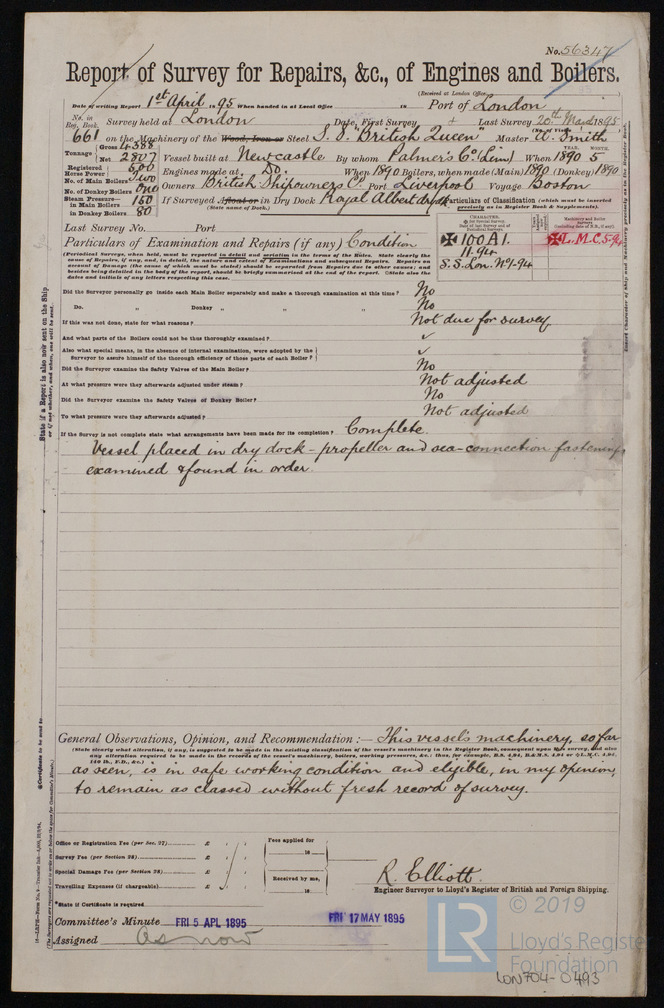 No. 56347
Report of Survey for Repairs, &c., of Engines and Boilers.
(Received at London Office
Date of writing Report 1st April 1895 When handed in at Local Office 18 Port of London
No. in Reg. Book. Survey held at London Date, First Survey + Last Survey 20th March 1895
661 on the Machinery of the Wood, Iron or Steel S.S. "British Queen" Master W. Smith
Tonnage Gross 4388 Net 2807 Vessel built at Newcastle By whom Palmer's Co. (Lim) When YEAR. 1890 MONTH. 5
Registered Horse Power 600 Engines made at Do. When 1890 Boilers, when made (Main) 1890 (Donkey) 1890
No. of Main Boilers Two
No. of Donkey Boilers One Owners British Shipowners Co. Port Liverpool Voyage Boston
Steam Pressure— in Main Boilers 160 If Surveyed Afloat or in Dry Dock Royal Albert dry dk
in Donkey Boilers 80 (State name of Dock.)
Particulars of Classification (which must be inserted precisely as in Register Book & Supplements).
Last Survey No. Port
CHARACTER.
✠ 100A1.
11.94
S.S. Lon. No1-94
✠ L.M.C. 5-94
Particulars of Examination and Repairs (if any) Condition
(Periodical Surveys, when held, must be reported in detail and seriatim in the terms of the Rules. State clearly the
cause of Repairs, if any, and, in detail, the nature and extent of Examinations and subsequent Repairs. Repairs on
account of Damage (the cause of which must be stated) should be separated from Repairs due to other causes; and
besides being detailed in the body of the report, should be briefly summarised at the end of the report. State also the
dates and initials of any letters respecting this case.
Did the Surveyor personally go inside each Main Boiler separately and make a thorough examination at this time? No
Do. " Donkey " " " No
If this was not done, state for what reasons? Not due for survey
And what parts of the Boilers could not be thus thoroughly examined? ✓
Also what special means, in the absence of internal examination, were adopted by the
Surveyor to assure himself of the thorough efficiency of those parts of each Boiler? ✓
Did the Surveyor examine the Safety Valves of the Main Boiler? No
At what pressure were they afterwards adjusted under steam? Not adjusted
Did the Surveyor examine the Safety Valves of Donkey Boiler? No
To what pressure were they afterwards adjusted? Not adjusted
If the Survey is not complete state what arrangements have been made for its completion? Complete.
Vessel placed in dry dock - propeller and sea-connection fastenings
examined & found in order.
General Observations, Opinion, and Recommendation :— This vessel's machinery, so far
(State clearly what alteration, if any, is suggested to be made in the existing classification of the vessel's machinery in the Register Book, consequent upon this survey, and also
any alteration required to be made in the records of the vessel's machinery, boilers, working pressures, &c.; thus, for example, B.S. 4,91, B.&M.S. 4,91 or ✠L.M.C. 4,91,
140 lb., F.D., &c.)
as seen, is in safe working condition and eligible, in my opinion,
to remain as classed without fresh record of survey.
Office or Registration Fee (per Sec. 27) £
Survey Fee (per Section 28) £
Special Damage Fee (per Section 28) £
Travelling Expenses (if chargeable) £
Fees applied for
18
Received by me,
18
R. Elliott.
Engineer Surveyor to Lloyd's Register of British and Foreign Shipping.
*State if Certificate is required
Committee's Minute FRI 5 APL 1895 FRI 17 MAY 1895
Assigned As now
State if a Report is also now sent on the Ship
or if not, whether, and when, one will be sent.
© 2019
LR
Lloyd's Register
Foundation
LON704-0493